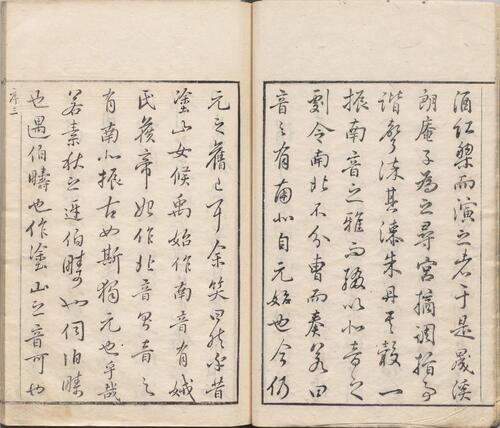 酒紅而演之者于是晟溪
朗庵子為之尋宮摘調指
諧聲其漆朱丹其轂一
振南音之雅而綴以北音之
劇令南北不分曹而奏若曰
音之有南北自元始也今仍
元之舊已耳余笑曰然乎昔
塗山女候禹始作南音有娀
氏候帝始作北音音之
有南北振古如斯獨元也乎哉
若素狄之遲伯疇也伺伯疇
也遇伯疇也作塗山之音可也
序二